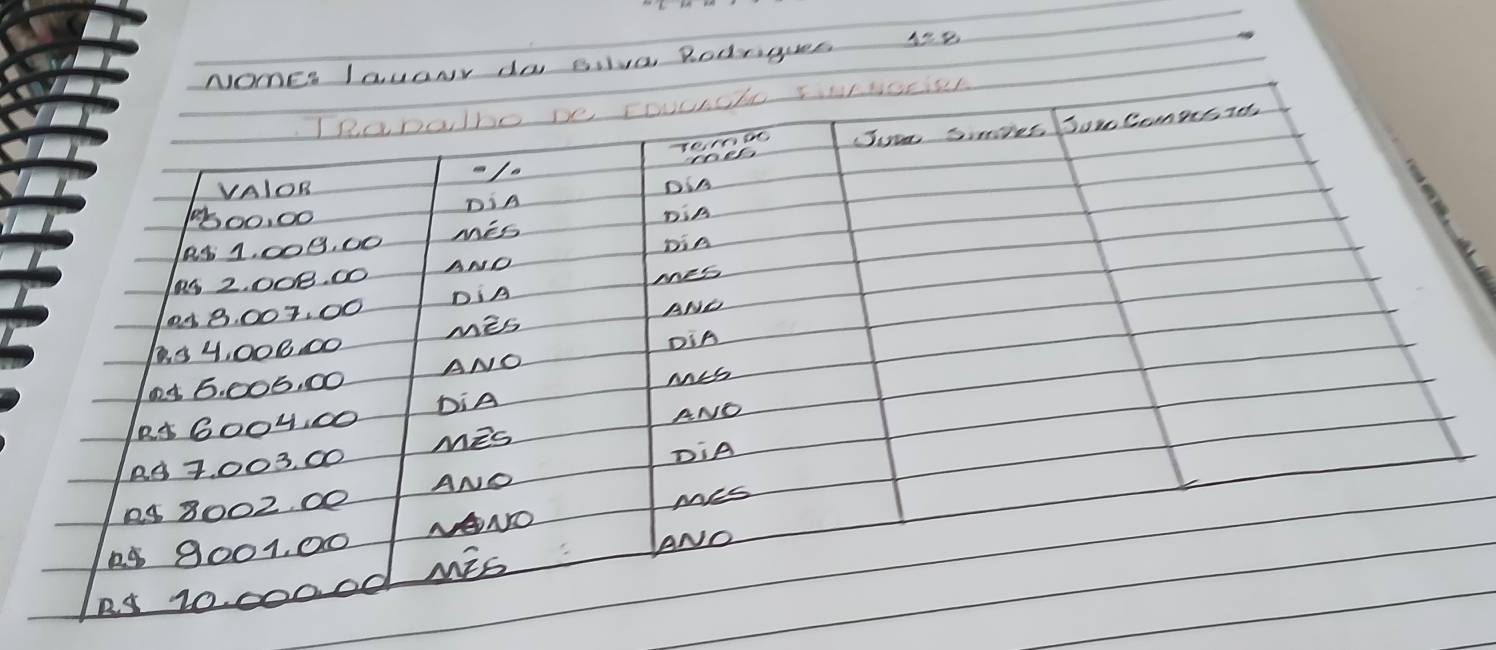 NOMES Lauany da Silva Rodrigues 128
TRabalho De EDUCAÇÃO FINANCEIRA
VALOR % Tempo mes Juro Simples Juro Composto
R$ 500,00 DiA DiA
R$ 1.009,00 MÊS DiA
R$ 2.008.00 ANO DiA
R$ 3.007.00 DiA MES
R$ 4.006.00 MÊS ANO
R$ 5.005,00 ANO DiA
R$ 6004,00 DiA MES
R$ 7.003.00 MÊS ANO
R$ 8002.00 ANO DiA
R$ 9001.00 ANO MES
R$ 10.000.00 MÊS ANO